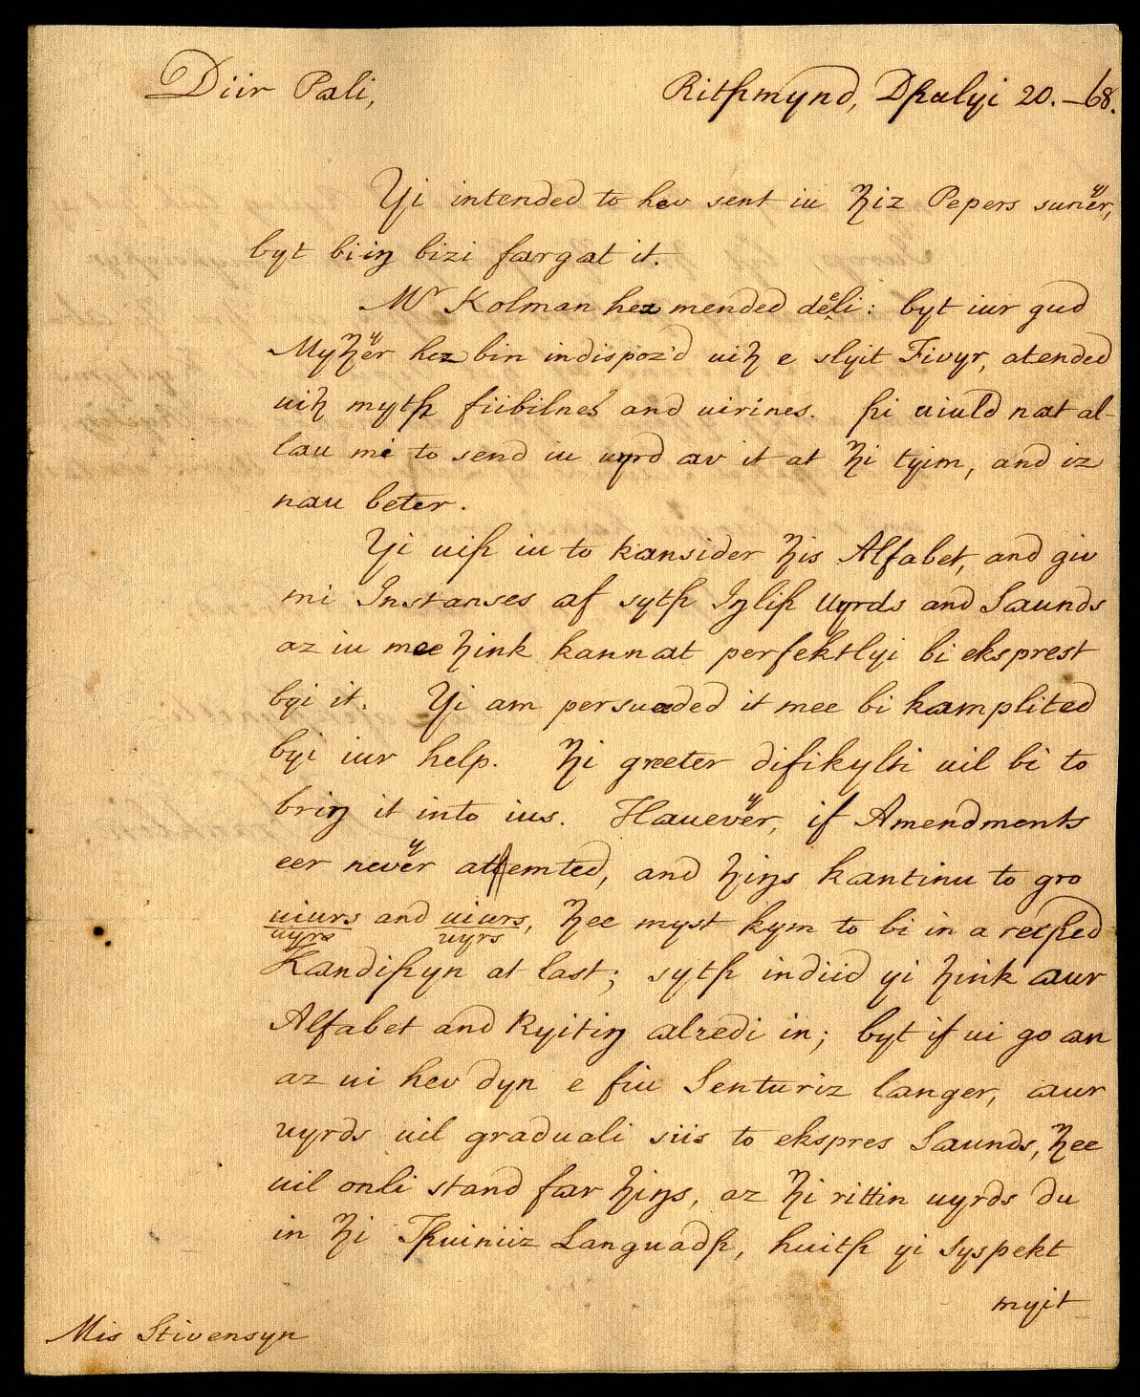 Diir Pali,
Ritſhmynd, Dſhulyi 20. –68.
Yi intended to hev sent iu ɦiz Pepers sunyr,
byt biiŋ bizi fargat it.
Mr Kolman hez mended deeli: byt iur gud
Myɦyr hez bin indispoz'd uiɦ e slyit Fivyr, atended
uiɦ mytſh fiibilnes and uirines. ſhi uiuld nat al-
lau mi to send iu uyrd av it at ɦi tyim, and iz
nau beter.
Yi uiſh iu to kansider ɦis Alfabet, and giv
mi Instanses af sytſh Iŋliſh Uyrds and Saunds
az iu mee ɦink kannat perfektlyi bi eksprest
byi it. Yi am persuaded it mee bi kamplited
byi iur help. ɦi greeter difikylti uil bi to
briŋ it into ius. Hauevyr, if Amendments
eer nevyr attemted, and ɦiŋs kantinu to gro
uiurs and uiurs, ɦee myst kym to bi in a retſhed
uyrs uyrs
Kandiſhyn at last; sytſh indiid yi ɦink aur
Alfabet and Ryitiŋ alredi in; byt if ui go an
az ui hev dyn e fiu Senturiz langer, aur
uyrds uil graduali siis to ekspres Saunds, ɦee
uil onli stand far ɦiŋs, az ɦi rittin uyrds du
in ɦi Tſhuiniiz Languadſh, huitſh yi syspekt
myit
Mis Stivensyn